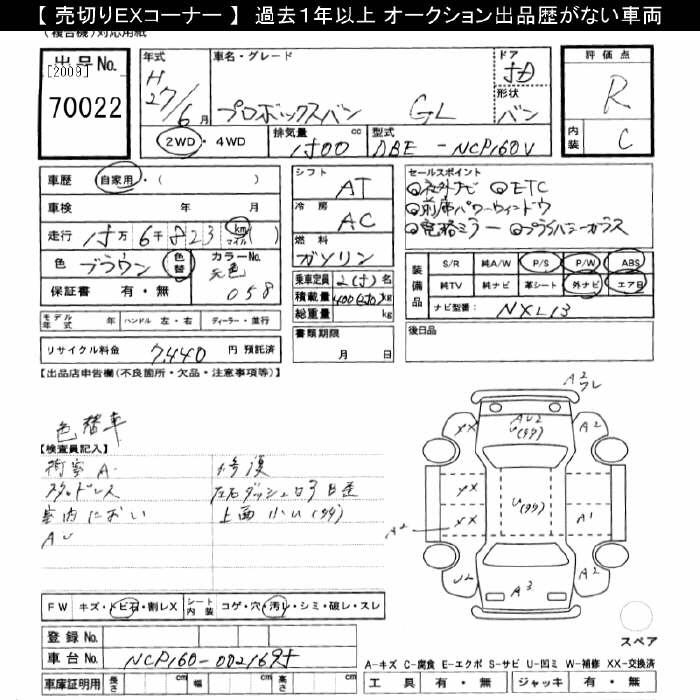 【 売切りEXコーナー 】 過去1年以上 オークション出品歴がない車両
(複合機)対応用紙
出品No.
[2009]
70022
年式
H
27/6月
車名・グレード
プロボックスバン GL
ドア
5D
形状
バン
評価点
R
内装
C
2WD・4WD
排気量
1500 cc
型式
DBE-NCP160V
車歴
自家用・( )
車検 年 月
走行 km マイル ( )
色
ブラウン
色替
カラーNo.
元色
058
保証書 有・無
シフト
AT
冷房
AC
燃料
ガソリン
乗車定員 2(5)名
積載量 kg
総重量 kg
書類期限
月 日
セールスポイント
社外ナビ ETC
前席パワーウィンドウ
電格ミラー プライバシーガラス
装備品
S/R 純A/W P/S P/W ABS
純TV 純ナビ 革シート 外ナビ エアB
ナビ型番: NXL13
後日品
モデル年式 年 ハンドル 左・右 ディーラー・並行
リサイクル料金 7,440 円 預託済
【出品店申告欄(不良箇所・欠品・注意事項等)】
色替車
【検査員記入】
荷室A
スタッドレス
室内におい
AU
修復
上面 小U(99)
FW キズ・トビ石・割レX
シート内装 コゲ・穴・汚レ・シミ・破レ・スレ
登録No.
車台No. NCP160-0021695
車庫証明用 長さ cm 幅 cm 高さ cm
A2
ワレ
XX
AU2
U(99)
A2
YX
U(99)
XX
A2
A1
U2
A3
A2
スペア
A-キズ C-腐食 E-エクボ S-サビ U-凹ミ W-補修 XX-交換済
工具 有・無 ジャッキ 有・無